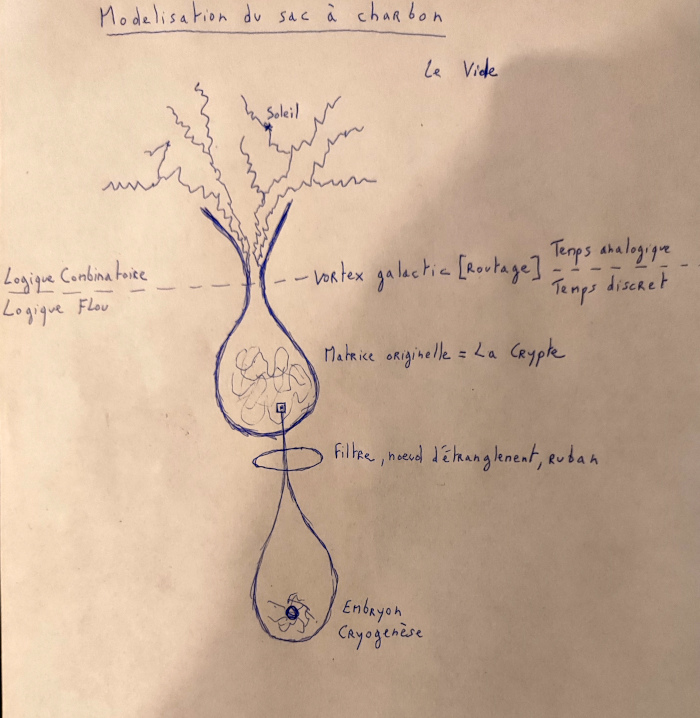 Modelisation du sac à charbon
Le Vide
Soleil
Logique Combinatoire
Logique Flou
Vortex galactic [Routage]
Temps analogique
Temps discret
Matrice originelle = La Crypte
Filtre, noeud d'étranglement, Ruban
Embryon
Cryogenèse